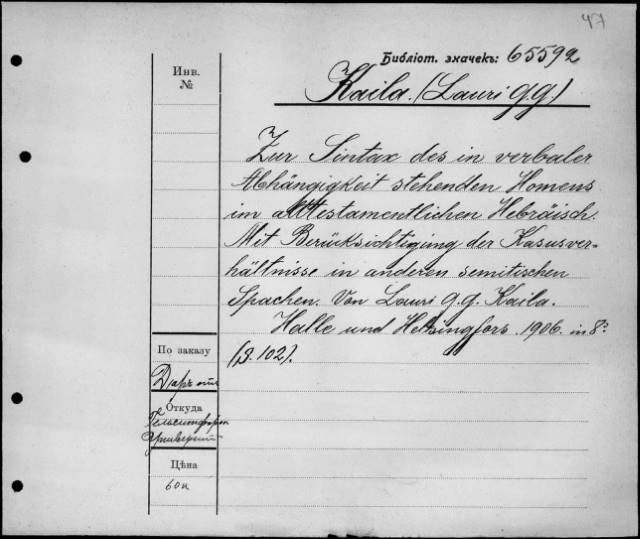 47
Библіот. значекъ: 65592
Инв.
№
Kaila. (Lauri G. G.)
Zur Sintax des in verbaler
Abhängigkeit stehenden Nomens
im alttestamentlichen Hebräisch.
Mit Berücksichtigung der Kasusver-
hältnisse in anderen semitischen
Spachen. Von Lauri G. G. Kaila.
Halle und Helsingfors. 1906. in 8º
(S. 102).
По заказу
Даръ отъ
Откуда
Гельсингфорск
Университ
Цѣна
60к